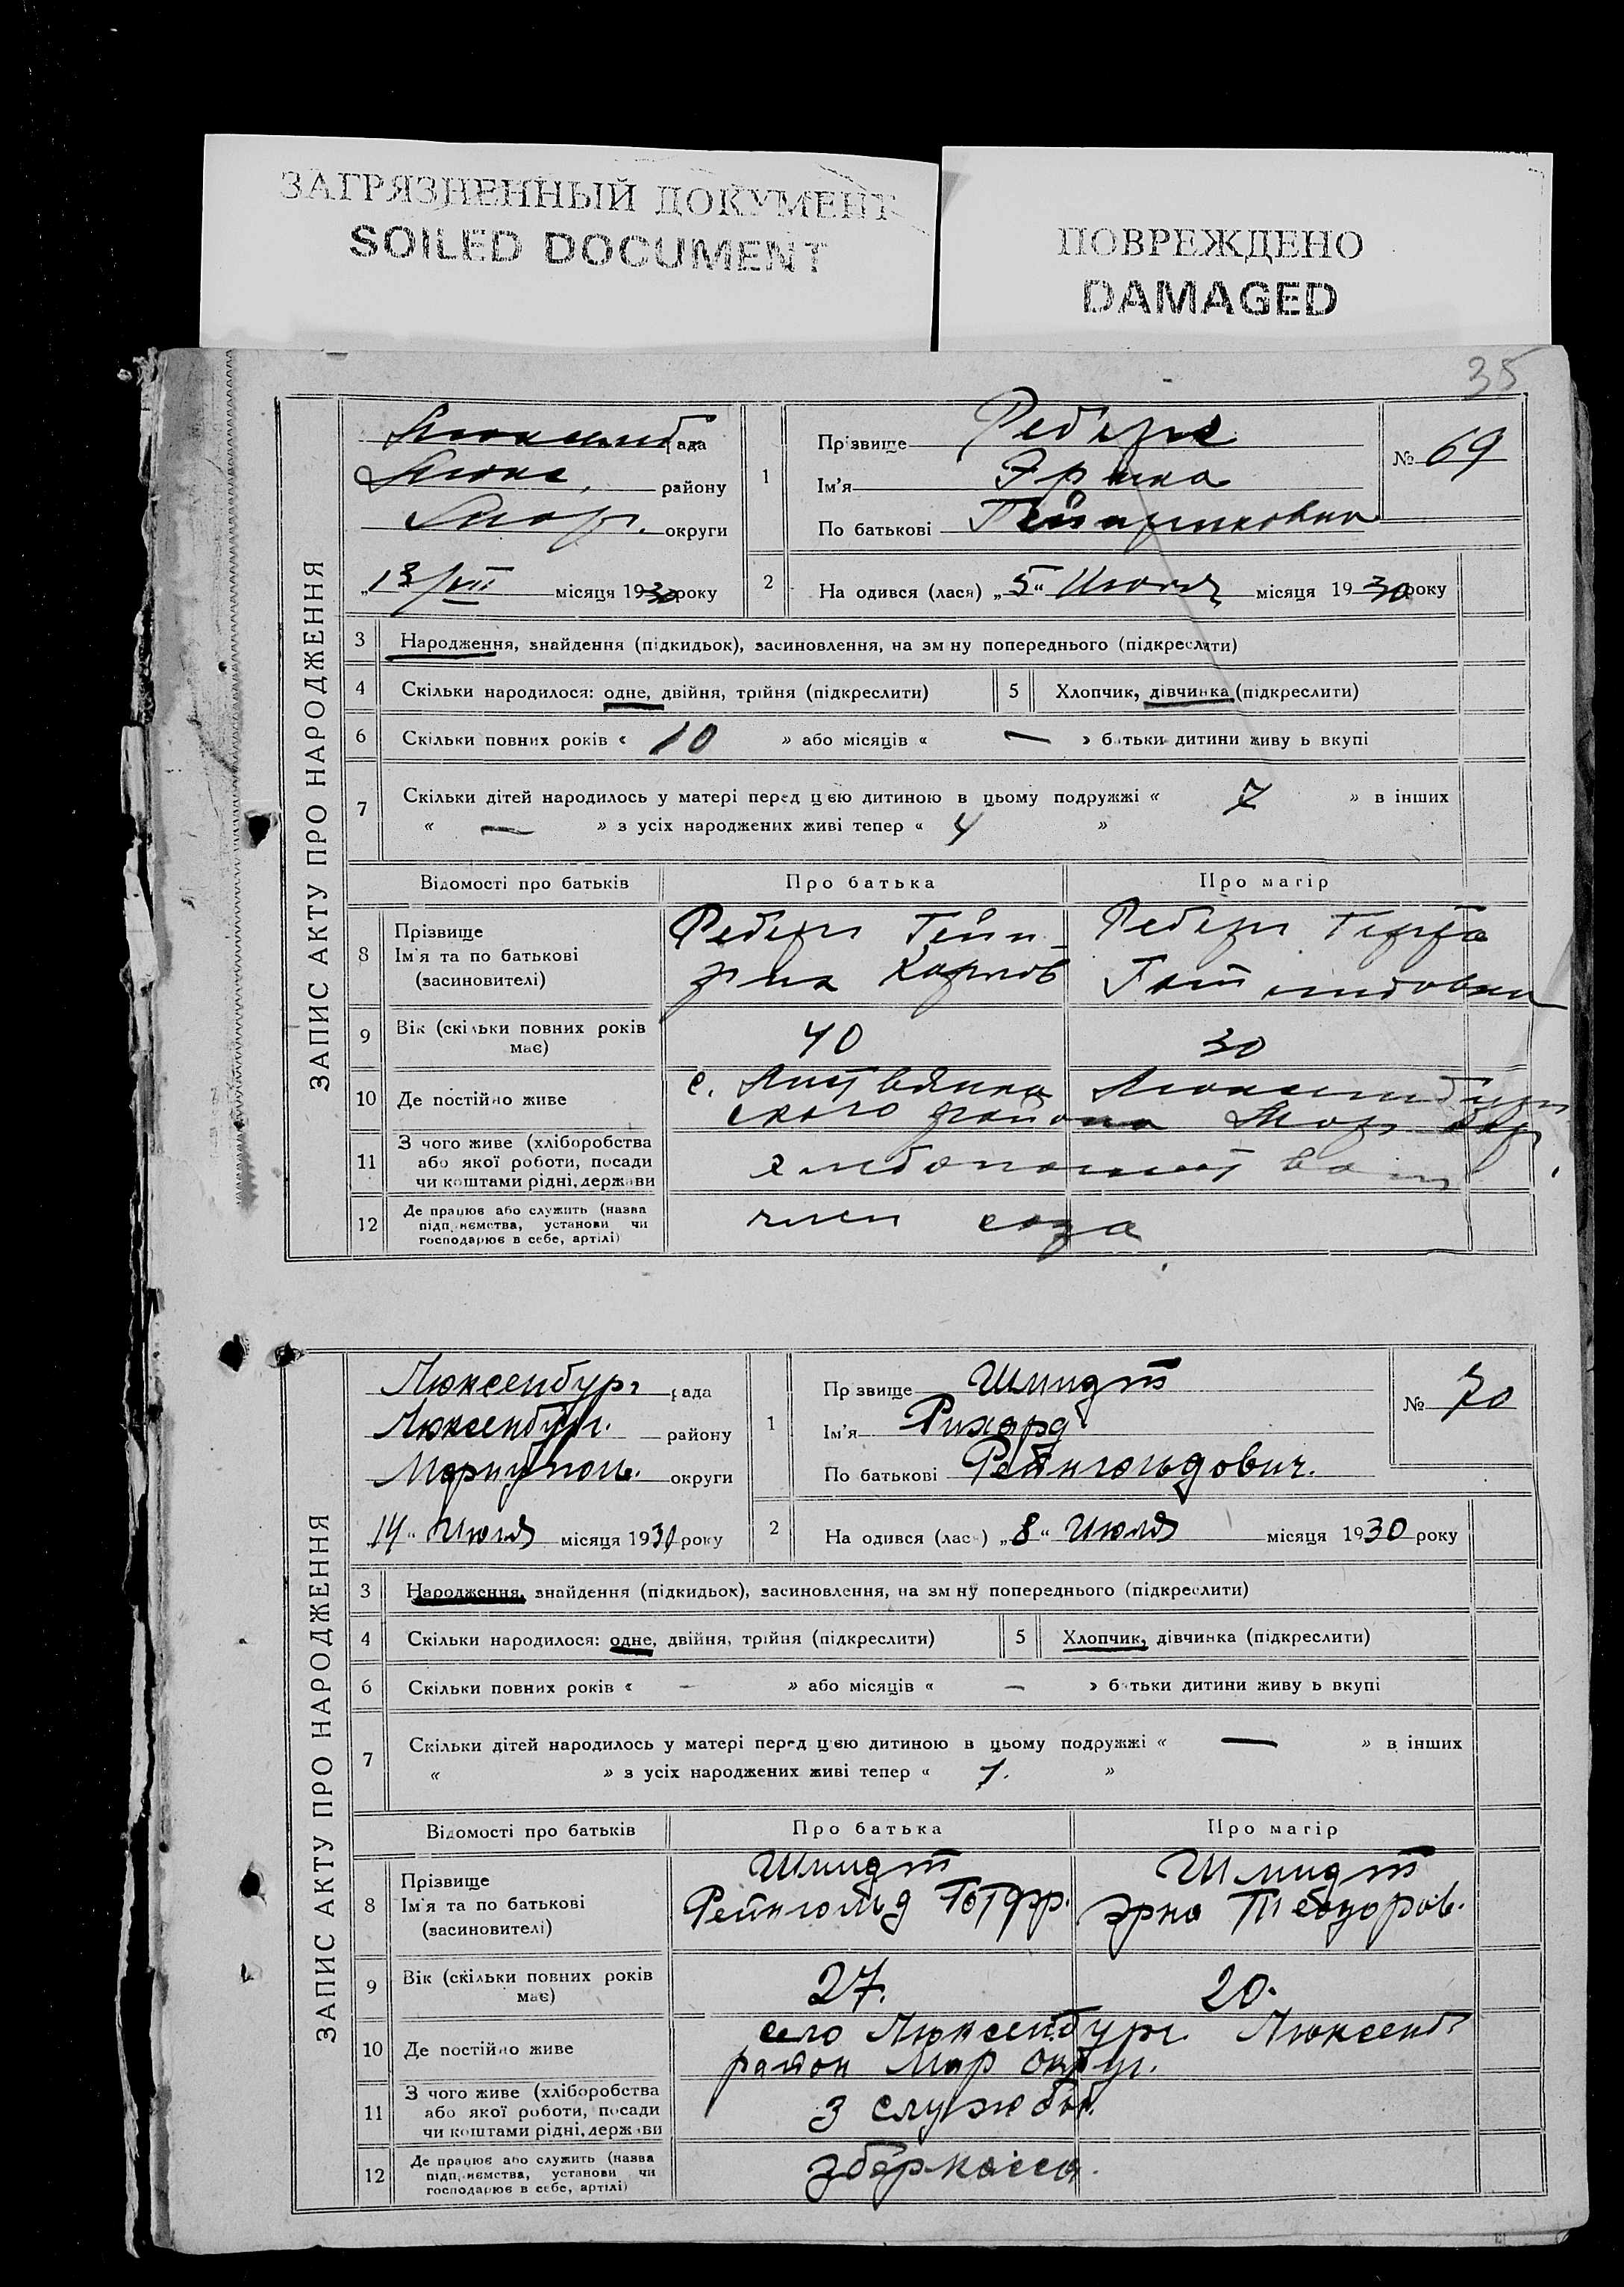 ЗАГРЯЗНЕННЫЙ ДОКУМЕНТ
SOILED DOCUMENT
ПОВРЕЖДЕНО
DAMAGED
35
ЗАПИС АКТУ ПРО НАРОДЖЕННЯ
Люксемб рада
Люкс. району
округи
"13/VII місяця 1930 року
1
Прізвище
Ім'я
По батькові Гейнриховна
№ 69
2 На одився (лася) „5“ Июля місяця 1930 року
3 Народження, знайдення (підкидьок), засиновлення, на зм ну попереднього (підкреслити)
4 Скільки народилося: одне, двійня, трійня (підкреслити) 5 Хлопчик, дівчинка (підкреслити)
6 Скільки повних років « 10 » або місяців « — » батьки дитини живу ь вкупі
7 Скільки дітей народилось у матері перед цією дитиною в цьому подружжі « 7 » в інших
« — » з усіх народжених живі тепер « 4 »
Відомості про батьків Про батька Про матір
8 Прізвище
Ім'я та по батькові
(засновителі)
Гейн-
риха Карлов
Готлибовна
9 Вік (скільки повних років має) 40 30
10 Де постійно живе
с. Люксембург
ского района Мар окр
11 З чого живе (хліборобства
або якої роботи, посади
чи коштами рідні, держави
12 Де працює або служить (назва
підприємства, установи чи
господарює в себе, артілі)
член соза
ЗАПИС АКТУ ПРО НАРОДЖЕННЯ
Люксембург рада
Люксембург. району
Мариуполь. округи
14“ Июля місяця 1930 року
1
Пр звище Шмидт
Ім'я Рихард
По батькові Рейнгольдович.
№ 70
2 На одився (лась) „8“ Июля місяця 1930 року
3 Народження, знайдення (підкидьок), засиновлення, на зм ну попереднього (підкреслити)
4 Скільки народилося: одне, двійня, трійня (підкреслити) 5 Хлопчик, дівчинка (підкреслити)
6 Скільки повних років « — » або місяців « — » батьки дитини живу ь вкупі
7 Скільки дітей народилось у матері перед цією дитиною в цьому подружжі « — » в інших
« » з усіх народжених живі тепер « 1. »
Відомості про батьків Про батька Про матір
8 Прізвище
Ім'я та по батькові
(засиновителі)
Шмидт
Рейнгольд Готфр.
Шмидт
Эрна Теодоров.
9 Вік (скільки повних років має) 27. 20.
10 Де постійно живе
село Люксембург Люксемб
район Мар округ.
11 З чого живе (хліборобства
або якої роботи, посади
чи коштами рідні, держави
з службы.
12 Де працює або служить (назва
підприємства, установи чи
господарює в себе, артілі)
зберкасса.